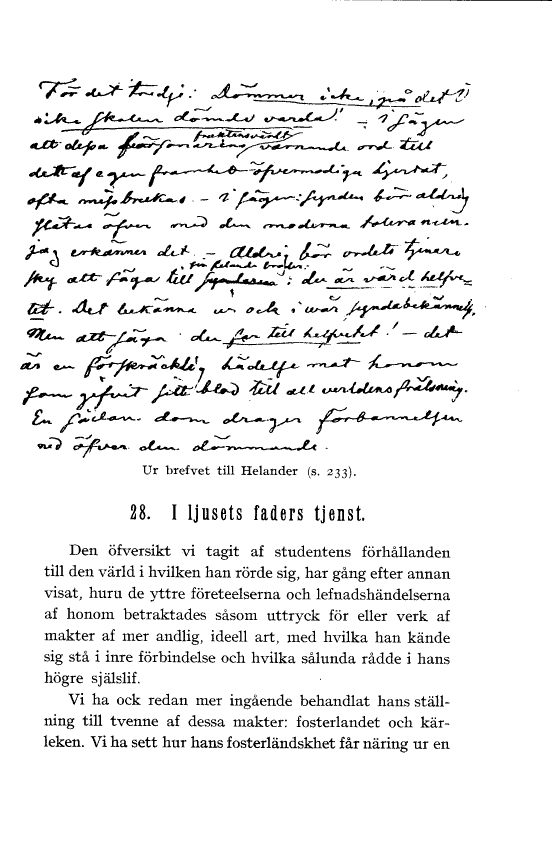 För det tredje: Dömmer icke, på det I
icke skolen dömde varda! – I sägen
att dessa fruktansvärdt varnande ord till
dett af egen fromhet öfvermodiga hjertat,
ofta missbrukas. – I sägen: synden bör aldrig
slätas öfver med den moderna toleransen.
Jag erkänner det. – Aldrig bör ordets tjenare
sin felande broder:
sky att säga till syndaren: du är värd helfve-
tet. Det bekänna vi ock i vår syndabekännelse,
Men att säga du far till helfvetet! – det
är en förskräcklig hädelse mot honom
som gifvit sitt blod till all verldens frälsning.
En sådan dom drager förbannelsen
ned öfver den dömmande.
Ur brefvet till Helander (s. 233).
28. I ljusets faders tjenst.
Den öfversikt vi tagit af studentens förhållanden
till den värld i hvilken han rörde sig, har gång efter annan
visat, huru de yttre företeelserna och lefnadshändelserna
af honom betraktades såsom uttryck för eller verk af
makter af mer andlig, ideell art, med hvilka han kände
sig stå i inre förbindelse och hvilka sålunda rådde i hans
högre själslif.
Vi ha ock redan mer ingående behandlat hans ställ-
ning till tvenne af dessa makter: fosterlandet och kär-
leken. Vi ha sett hur hans fosterländskhet får näring ur en